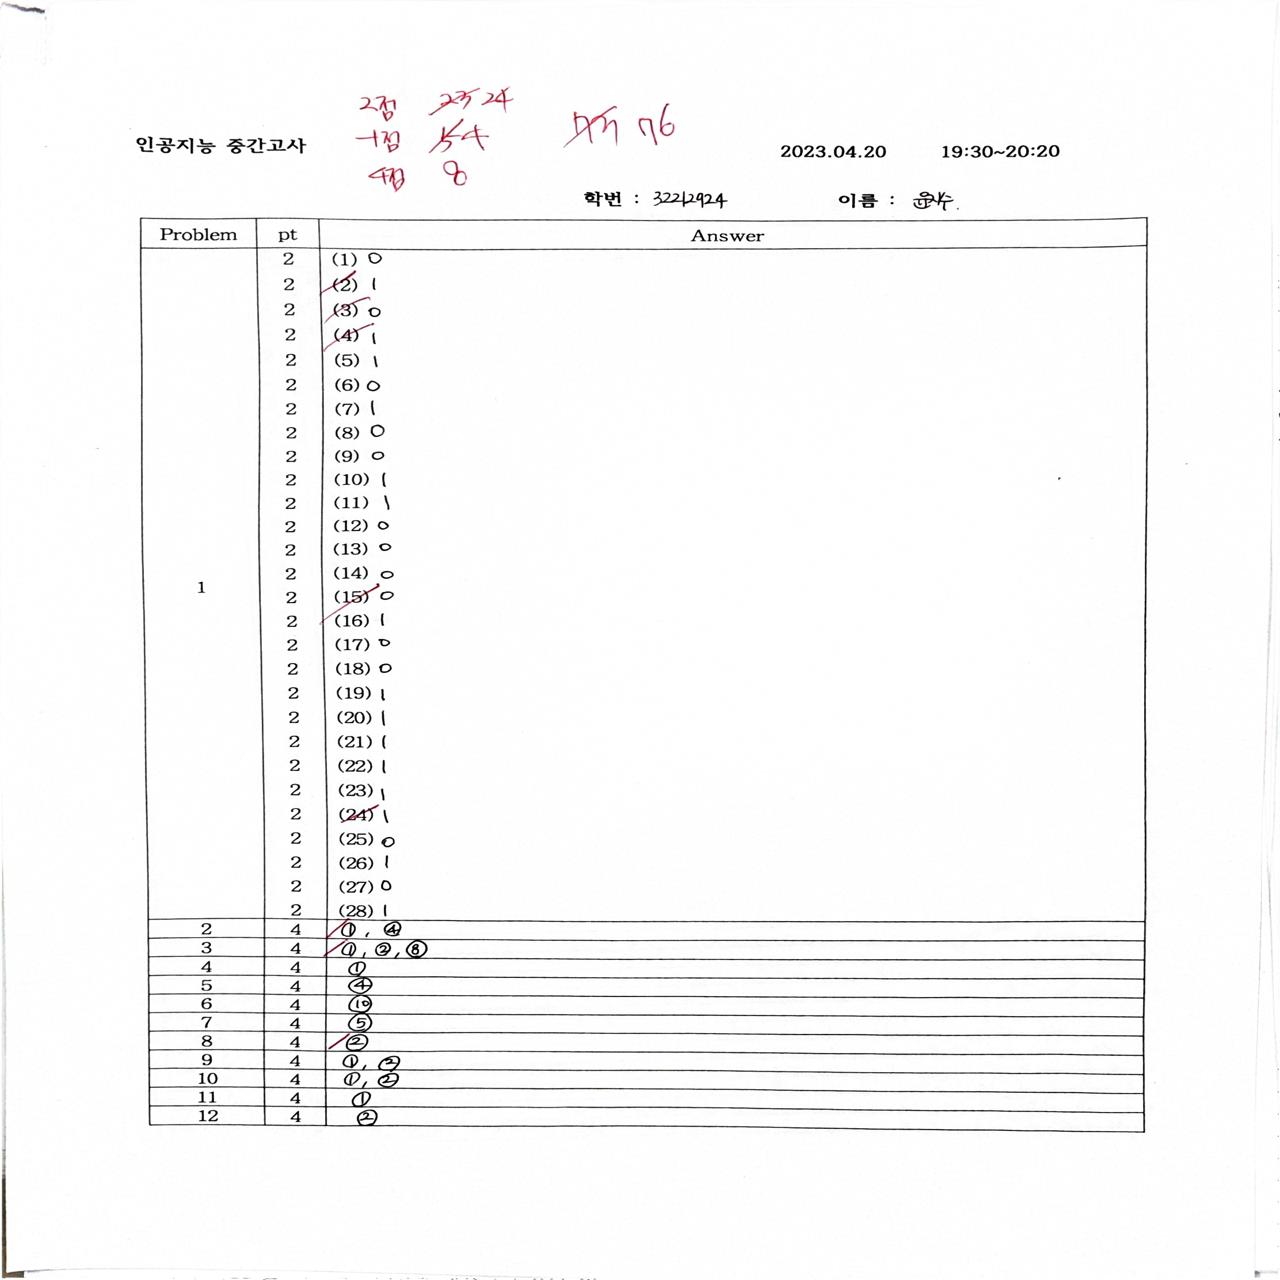 2점 23 24
인공지능 중간고사 -1점 5 4 76
4점 8
2023.04.20 19:30~20:20
학번 : 32212924 이름 : 윤수
Problem pt Answer
2 (1) 0
2 (2) 1
2 (3) 0
2 (4) 1
2 (5) 1
2 (6) 0
2 (7) 1
2 (8) 0
2 (9) 0
2 (10) 1
2 (11) 1
2 (12) 0
2 (13) 0
2 (14) 0
1 2 (15) 0
2 (16) 1
2 (17) 0
2 (18) 0
2 (19) 1
2 (20) 1
2 (21) 1
2 (22) 1
2 (23) 1
2 (24) 1
2 (25) 0
2 (26) 1
2 (27) 0
2 (28) 1
2 4 ①, ④
3 4 ①, ②, ⑧
4 4 ①
5 4 ④
6 4 ⑩
7 4 ⑤
8 4 ②
9 4 ①, ②
10 4 ①, ②
11 4 ①
12 4 ②